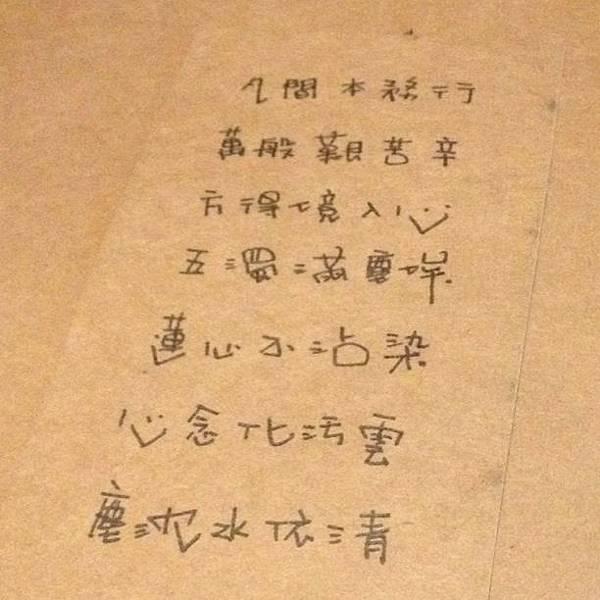 間本行
萬般艱苦辛
方得境入心
五濁滿塵埃
蓮心不沾染
心念化污雲
塵沈水依清